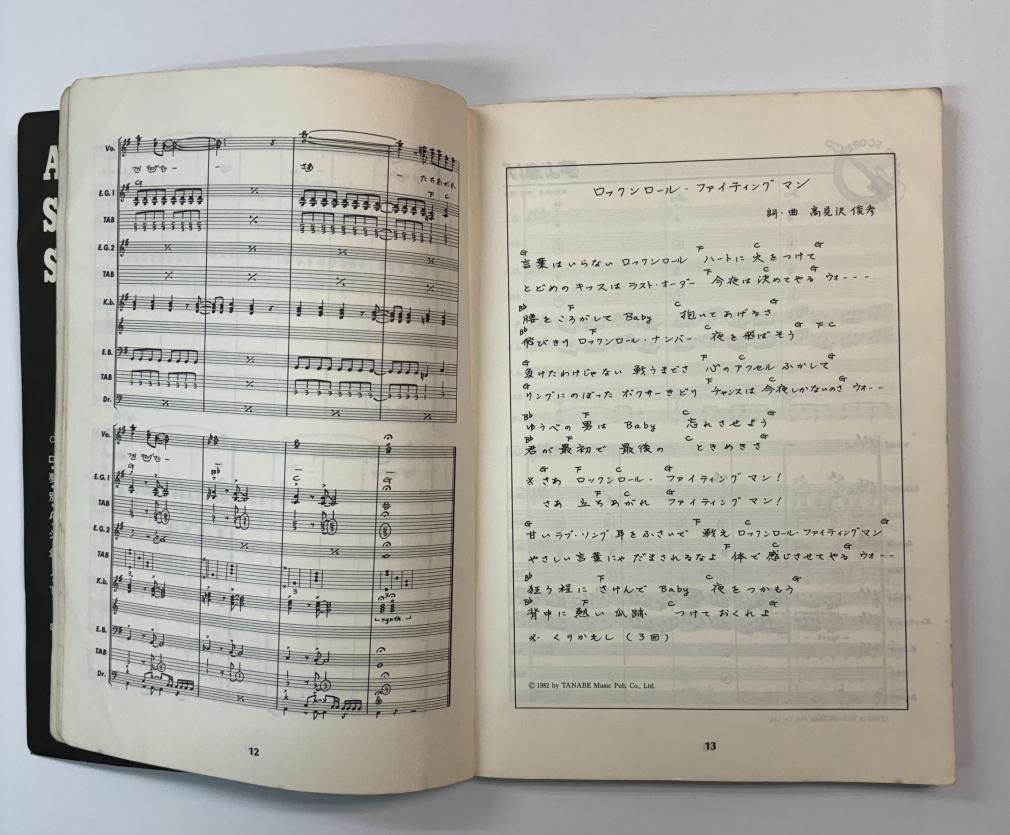 A
S
S
Vo.
たちあがれ
E.G.1
TAB
E.G.2
TAB
K.b.
E.B.
TAB
Dr.
Vo.
E.G.1
TAB
E.G.2
TAB
K.b.
synth.
E.B.
TAB
Dr.
12
ロックンロール・ファイティングマン
詞・曲 高見沢俊彦
G F C G
言葉はいらない ロックンロール ハートに火をつけて
F C G
とどめのキッスは ラスト・オーダー 今夜は決めてやる ウォーーーー
B♭ F C G
腰をころがして Baby 抱いてあげるさ
B♭ F C G F C
飛びきり ロックンロール・ナンバー 夜を飛ばそう
G F C G
負けたわけじゃない 戦うまでさ 心のアクセル ふかして
G F C G
リングにのぼった ボクサーきどり チャンスは今夜しかないのさ ウォーーー
B♭ F C G
ゆうべの男は Baby 忘れさせよう
B♭ F C G
君が最初で 最後の ときめきさ
G F C G
※ さあ ロックンロール・ファイティングマン!
F C G
さあ 立ちあがれ ファイティングマン!
G F C G
甘いラブ・ソング 耳をふさいで 戦え ロックンロール・ファイティングマン
F C G
やさしい言葉にゃ だまされるなよ 体で感じさせてやる ウォーーー
B♭ F C G
狂う程に さけんで Baby 夜をつかもう
B♭ F C G
背中に 熱い 爪跡 つけておくれよ
※ くりかえし (3回)
©1982 by TANABE Music Pub. Co., Ltd.
13